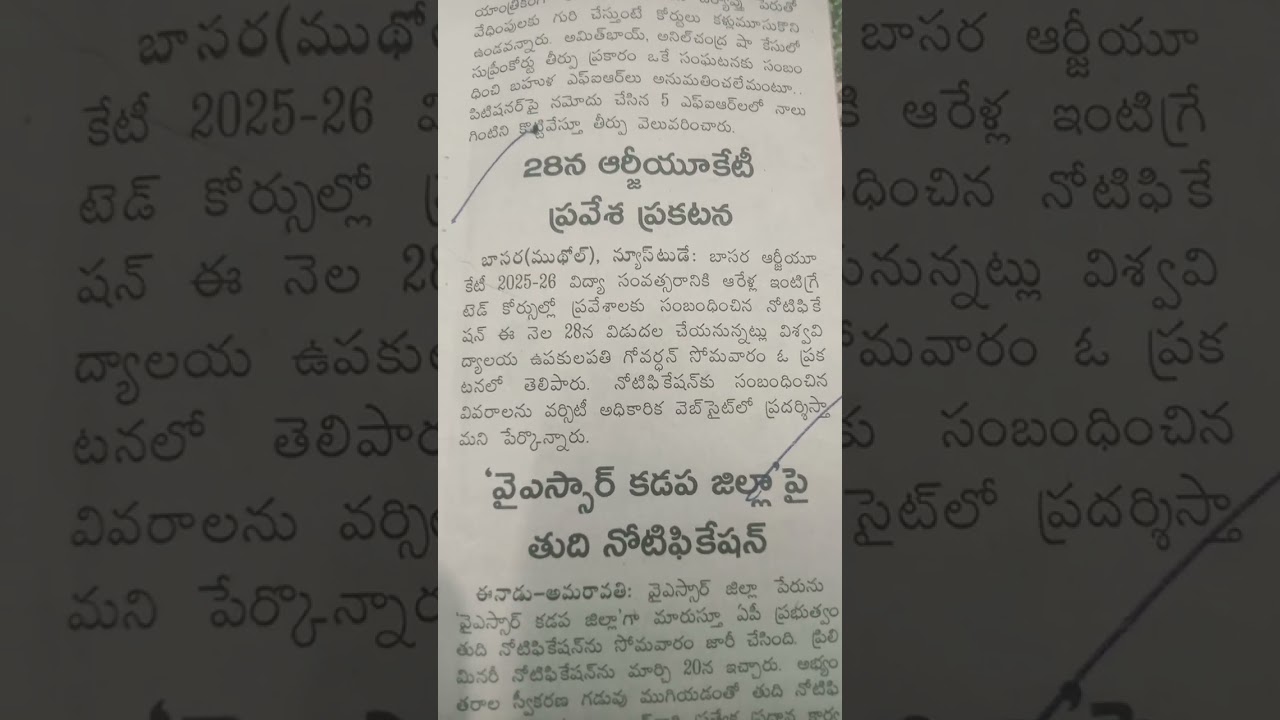 వేధింపులకు గురి చేస్తుంటే కోర్టులు కళ్లుమూసుకొని
ఉండవన్నారు. అమిత్‌భాయ్, అనిల్‌చంద్ర షా కేసులో
సుప్రీంకోర్టు తీర్పు ప్రకారం ఒకే సంఘటనకు సంబం
ధించి బహుళ ఎఫ్ఐఆర్‌లు అనుమతించలేమంటూ..
పిటిషనర్‌పై నమోదు చేసిన 5 ఎఫ్ఐఆర్‌లలో నాలు
గింటిని కొట్టివేస్తూ తీర్పు వెలువరించారు.
28న ఆర్జీయూకేటీ
ప్రవేశ ప్రకటన
బాసర(ముథోల్), న్యూస్‌టుడే: బాసర ఆర్జీయూ
కేటీ 2025-26 విద్యా సంవత్సరానికి ఆరేళ్ల ఇంటిగ్రే
టెడ్ కోర్సుల్లో ప్రవేశాలకు సంబంధించిన నోటిఫికే
షన్ ఈ నెల 28న విడుదల చేయనున్నట్లు విశ్వవి
ద్యాలయ ఉపకులపతి గోవర్ధన్ సోమవారం ఓ ప్రక
టనలో తెలిపారు. నోటిఫికేషన్‌కు సంబంధించిన
వివరాలను వర్సిటీ అధికారిక వెబ్‌సైట్‌లో ప్రదర్శిస్తా
మని పేర్కొన్నారు.
‘వైఎస్సార్ కడప జిల్లా’పై
తుది నోటిఫికేషన్
ఈనాడు-అమరావతి: వైఎస్సార్ జిల్లా పేరును
‘వైఎస్సార్ కడప జిల్లా’గా మారుస్తూ ఏపీ ప్రభుత్వం
తుది నోటిఫికేషన్‌ను సోమవారం జారీ చేసింది. ప్రిలి
మినరీ నోటిఫికేషన్‌ను మార్చి 20న ఇచ్చారు. అభ్యం
తరాల స్వీకరణ గడువు ముగియడంతో తుది నోటిఫి